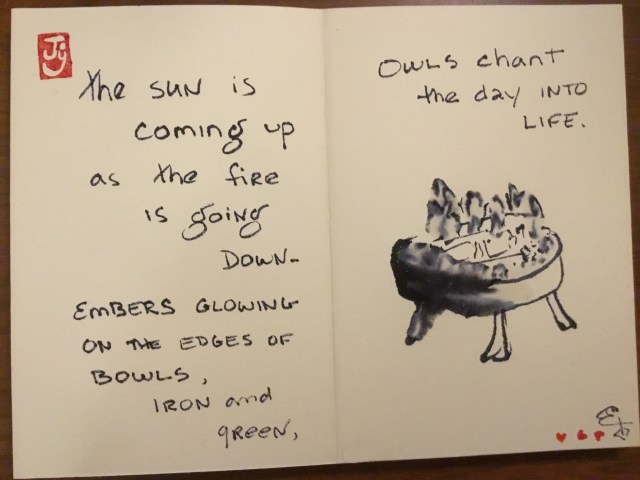 the SUN is
coming up
as the fire
is going
DOWN-
EMBERS GLOWING
ON the EDGES OF
BOWLS,
IRON and
GREEN,
OWLS chant
the day INTO
LIFE.